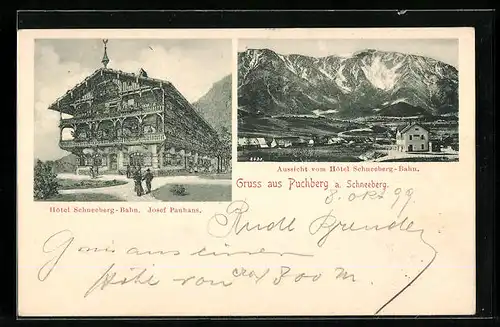 Hôtel Schneeberg-Bahn. Josef Panhans.
Aussicht vom Hôtel Schneeberg-Bahn.
Gruss aus Puchberg a. Schneeberg.
8. Okt 99.
aus einer
Höhe von 800 m.